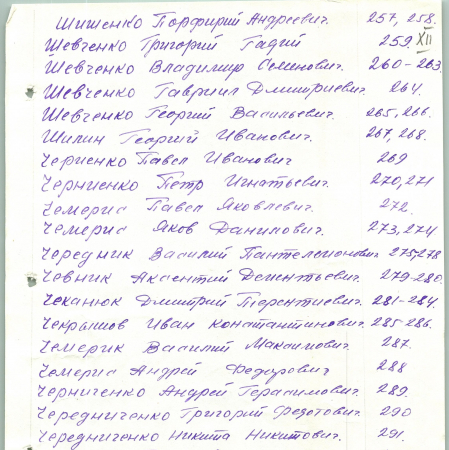 Шишенко Порфирий Андреевич. 257, 258.
Шевченко Григорий Гадий 259 XII
Шевченко Владимир Семенович. 260-263
Шевченко Гавриил Дмитриевич. 264.
Шевченко Георгий Васильевич. 265, 266.
Шилин Георгий Иванович. 267, 268.
Черненко Павел Иванович 269
Черниенко Петр Игнатьевич. 270, 271
Чемерис Павел Яковлевич. 272.
Чемерис Яков Данилович. 273, 274
Чередник Василий Пантелеймонович 275, 278
Чевник Аксентий Дементьевич. 279-280.
Чеканюк Дмитрий Терентиевич. 281-284.
Чекрышов Иван Константинович. 285-286.
Чемерик Василий Максимович. 287.
Чемерис Андрей Федорович 288
Черниченко Андрей Герасимович. 289.
Чередниченко Григорий Федотович. 290
Чередниченко Никита Никитович. 291.